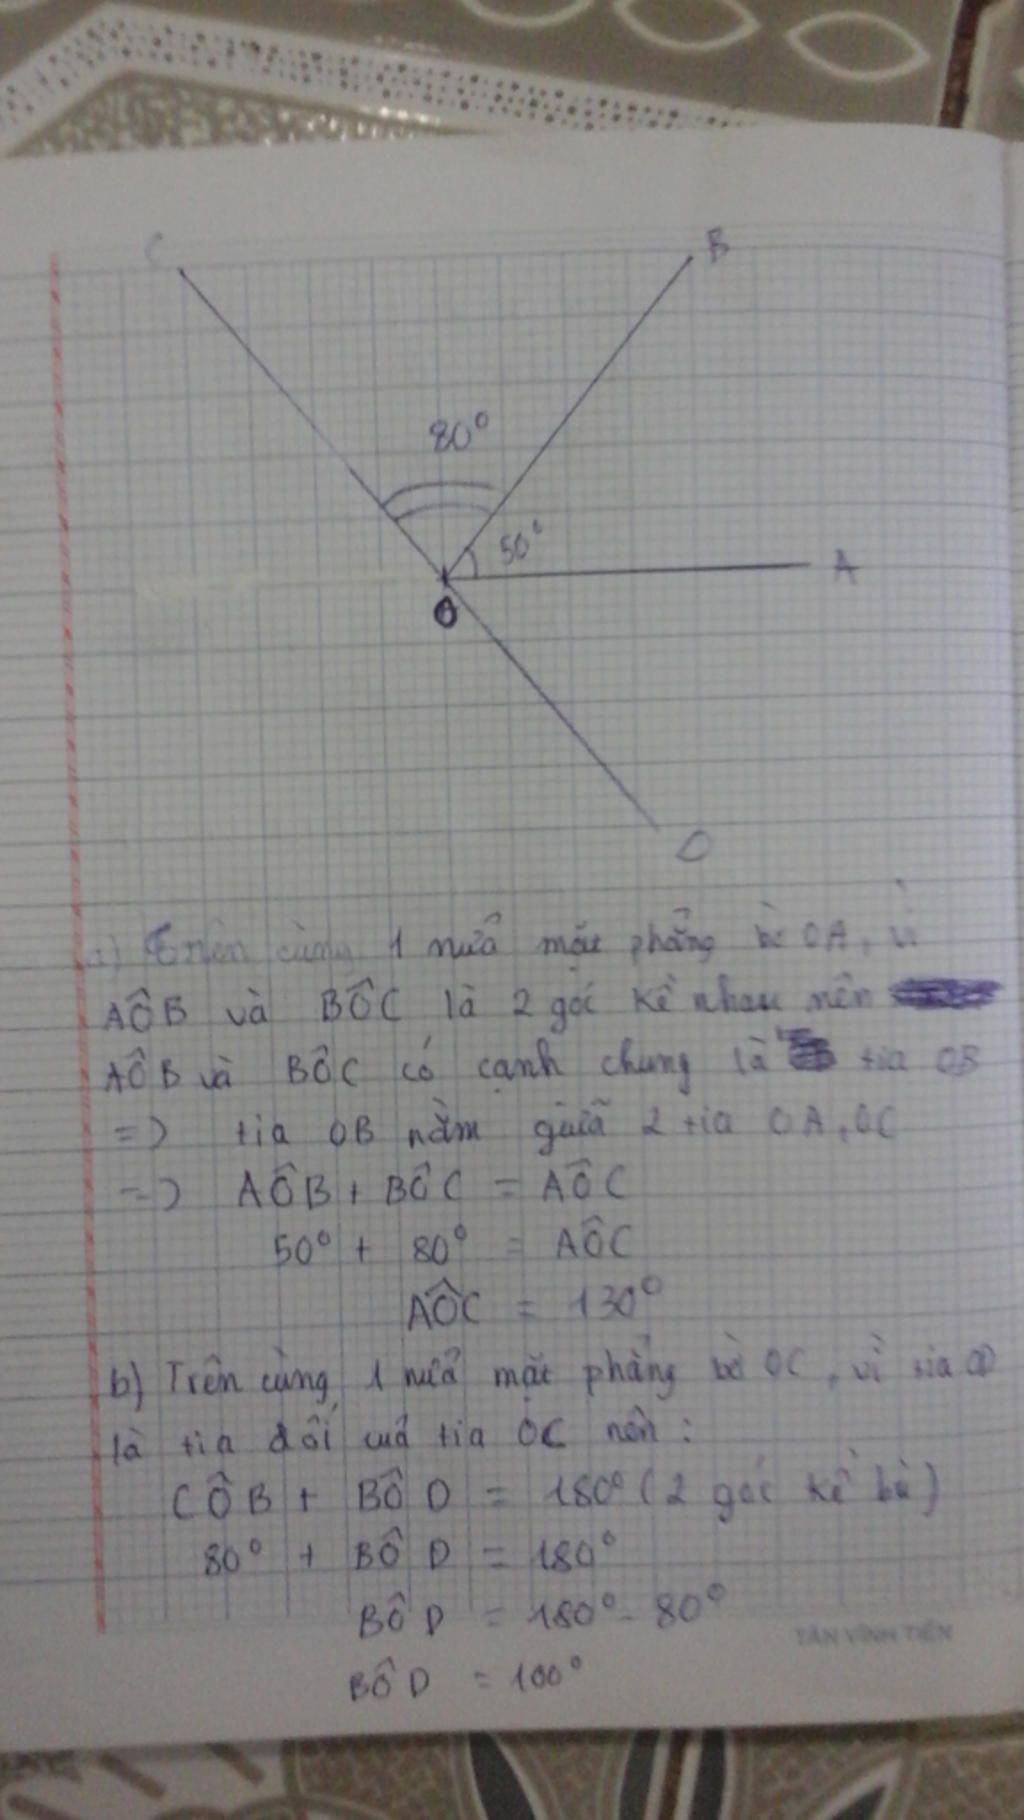 C
B
80°
50°
A
O
D
a) Trên cùng 1 nửa mặt phẳng bờ OA, vì
AÔB và BÔC là 2 góc kề nhau nên
AÔB và BÔC có cạnh chung là tia OB
=> tia OB nằm giữa 2 tia OA, OC
=> AÔB + BÔC = AÔC
50° + 80° = AÔC
AÔC = 130°
b) Trên cùng 1 nửa mặt phẳng bờ OC, vì tia OD
là tia đối cuả tia OC nên :
CÔB + BÔD = 180° (2 góc kề bù)
80° + BÔD = 180°
BÔD = 180° - 80°
BÔD = 100°
TÂN VĨNH TIẾN